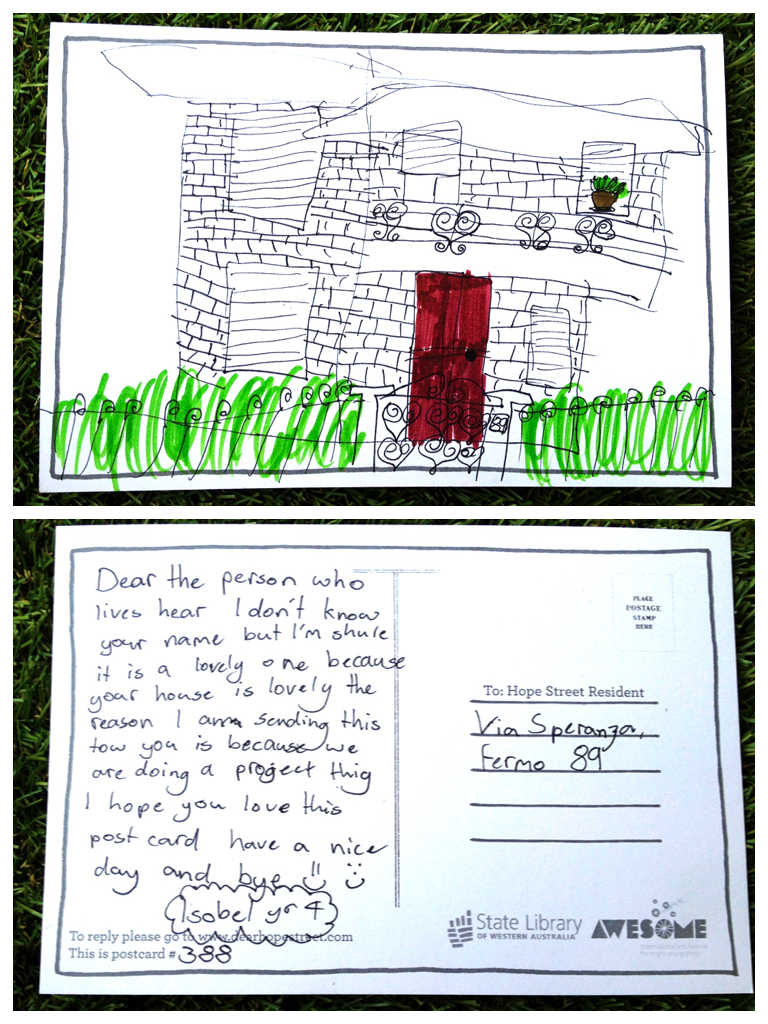 89
Dear the person who
lives hear I don't know
your name but I'm shure
it is a lovely one because
your house is lovely the
reason I am sending this
tow you is because we
are doing a project thig
I hope you love this
post card have a nice
day and bye
Isobel yr 4
To reply please go to www.dearhopestreet.com
This is postcard # 388
PLACE
POSTAGE
STAMP
HERE
To: Hope Street Resident
Via Speranza,
Fermo 89
State Library
OF WESTERN AUSTRALIA
AWESOME